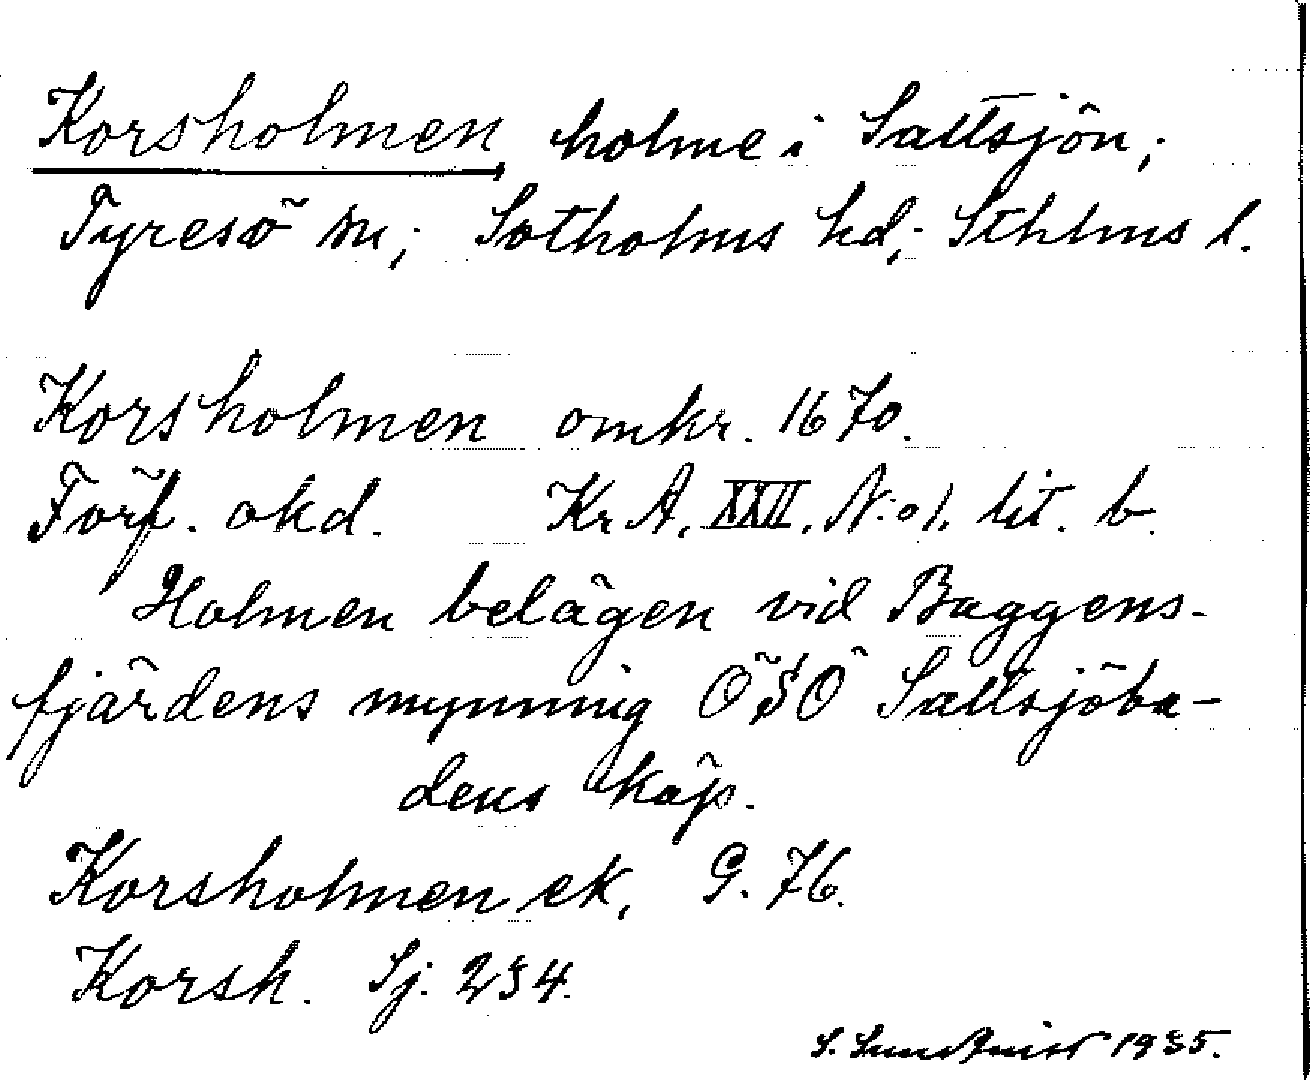 Korsholmen, holme i Saltsjön;
Tyresö sn; Sotholms hd; Sthlms l.
Korsholmen omkr. 1670.
Förf. okd. Kr A. XXII. N:o 1. lit. b.
Holmen belägen vid Baggens-
fjärdens mynning ÖSÖ Saltsjöba-
dens köp.
Korsholmen ek. G. 76.
Korsh. Sj. 234.
S. Sundqvist 1935.